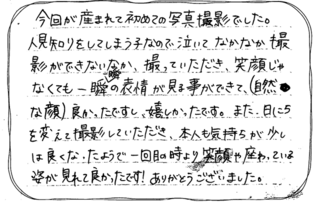 今回が産まれて初めての写真撮影でした。
人見知りをしてしまう子なので、泣いてなかなか撮
影ができないなか、撮っていただき、笑顔じゃ
なくても一瞬の表情が見る事ができて、(自然
な顔)良かったですし、嬉しかったです。また、日にち
を変えて撮影していただき、本人も気持ちが少し
は良くなったようで一回目の時より笑顔や座っている
姿が見れて良かったです!ありがとうございました。